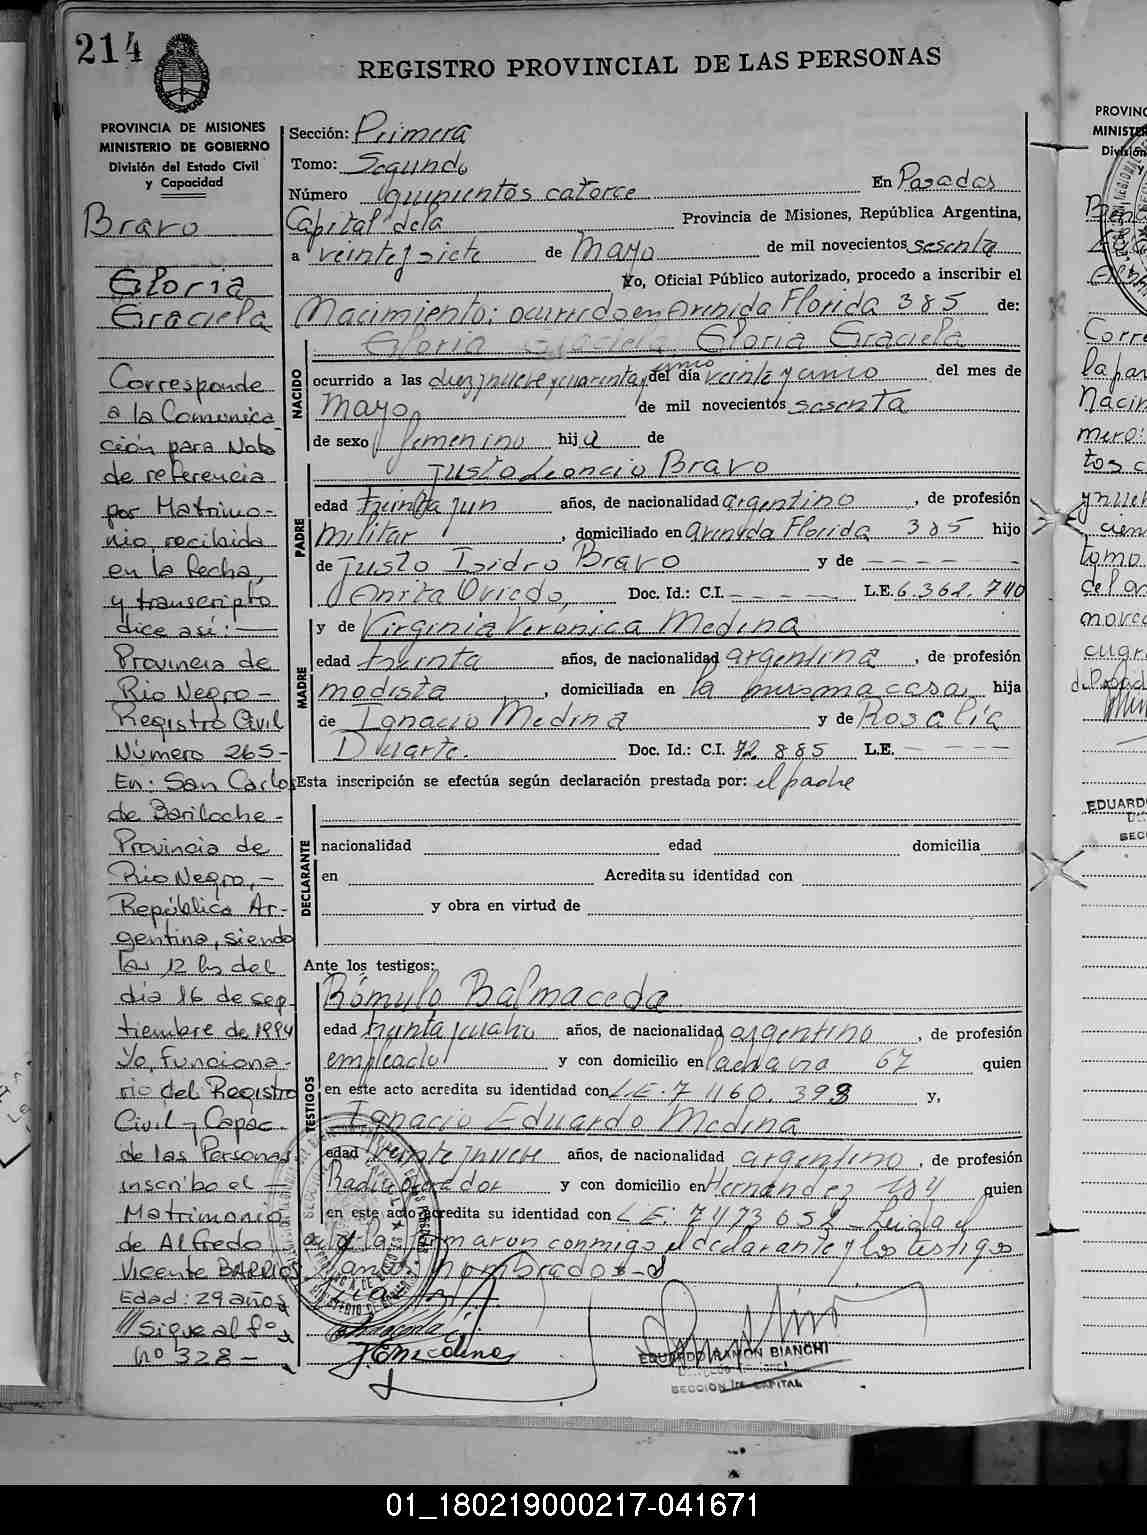 214
REGISTRO PROVINCIAL DE LAS PERSONAS
PROVINCIA DE MISIONES
MINISTERIO DE GOBIERNO
División del Estado Civil
y Capacidad
Bravo
Gloria
Graciela
Corresponde
a la Comunica
ción para Nota
de referencia
por Matrimo-
nio, recibida
en la fecha,
y transcripta
dice así:
Provincia de
Rio Negro-
Registro Civil
Número 265-
En: San Carlos
de Bariloche-
Provincia de
Rio Negro,-
República Ar-
gentina, siendo
las 12 hs del
día 16 de sep
tiembre de 1994
Yo, Funciona-
rio del Registro
Civil y Capac.
de las Personas
inscribo el -
Matrimonio
de Alfredo
Vicente BARRIOS
Edad: 29 años
/// sigue al fº
Nº 328-
Sección: Primera
Tomo: Segundo
Número quinientos catorce En Posadas
Capital de la Provincia de Misiones, República Argentina,
a veintisiete de Mayo de mil novecientos sesenta
Yo, Oficial Público autorizado, procedo a inscribir el
Nacimiento: ocurrido en Avenida Florida 385 de:
Gloria Graciela Gloria Graciela
NACIDO
ocurrido a las diez y nueve y cuarenta y cinco del día veinte y cinco del mes de
Mayo de mil novecientos sesenta
de sexo femenino hija de
PADRE
Justo Leoncio Bravo
edad treinta y un años, de nacionalidad argentino, de profesión
militar, domiciliado en avenida Florida 385 hijo
de Justo Isidro Bravo y de - - - - - - -
Anita Oviedo, Doc. Id.: C.I. - - - - - L.E. 6.362.740
MADRE
y de Virginia Veronica Medina
edad treinta años, de nacionalidad argentina, de profesión
modista, domiciliada en la misma casa, hija
de Ignacio Medina y de Rosalía
Duarte. Doc. Id.: C.I. 72.885 L.E. - - - -
Esta inscripción se efectúa según declaración prestada por: el padre
DECLARANTE
nacionalidad edad domicilia
en Acredita su identidad con
y obra en virtud de
Ante los testigos:
TESTIGOS
Rómulo Balmaceda
edad treinta y cuatro años, de nacionalidad argentino, de profesión
empleado y con domicilio en 67 quien
en este acto acredita su identidad con L.E. 7 1160.398 y,
Ignacio Eduardo Medina
edad veinte y nueve años, de nacionalidad argentino, de profesión
Radio operador y con domicilio en Hernandez 184 quien
en este acto acredita su identidad con L E: 7473652 - Leida el
acta la firmaron conmigo el declarante y los testigos
antes nombrados-
J.E. Medina
EDUARDO RAMON BIANCHI
SECCION 1ra CAPITAL
PROVINC
MINISTE
Divisi
Corre
la par
Nacim
mero:
tos c
y nue
cien
tomo
del a
nove
EDUARD
SEC
01_180219000217-041671